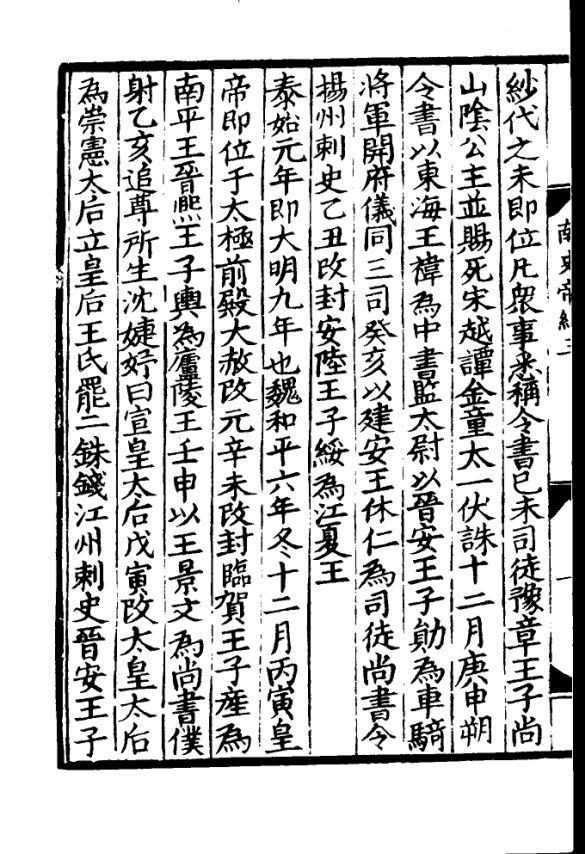 南史帝紀三
一
紗代之未即位凡衆事悉稱令書己未司徒豫章王子尚
山陰公主並賜死宋越譚金童太一伏誅十二月庚申朔
令書以東海王禕為中書監太尉以晉安王子勛為車騎
將軍開府儀同三司癸亥以建安王休仁為司徒尚書令
揚州刺史乙丑改封安陸王子綏為江夏王
泰始元年即大明九年也魏和平六年冬十二月丙寅皇
帝即位于太極前殿大赦改元辛未改封臨賀王子產為
南平王晉熙王子輿為廬陵王壬申以王景文為尚書僕
射乙亥追尊所生沈婕妤曰宣皇太后戊寅改太皇太后
為崇憲太后立皇后王氏罷二銖錢江州刺史晉安王子